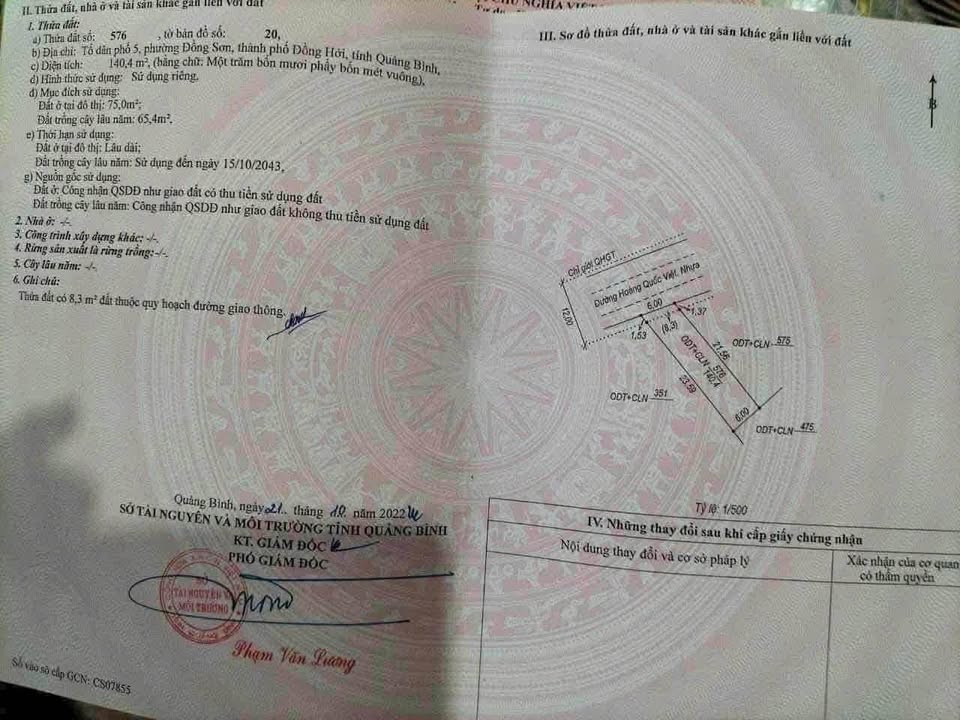 II. Thửa đất, nhà ở và tài sản khác gắn liền với đất
1. Thửa đất:
a) Thửa đất số: 576 , tờ bản đồ số: 20,
b) Địa chỉ: Tổ dân phố 5, phường Đồng Sơn, thành phố Đồng Hới, tỉnh Quảng Bình,
c) Diện tích: 140,4 m², (bằng chữ: Một trăm bốn mươi phẩy bốn mét vuông),
d) Hình thức sử dụng: Sử dụng riêng,
đ) Mục đích sử dụng:
Đất ở tại đô thị: 75,0m²;
Đất trồng cây lâu năm: 65,4m²,
e) Thời hạn sử dụng:
Đất ở tại đô thị: Lâu dài;
Đất trồng cây lâu năm: Sử dụng đến ngày 15/10/2043,
g) Nguồn gốc sử dụng:
Đất ở: Công nhận QSDĐ như giao đất có thu tiền sử dụng đất
Đất trồng cây lâu năm: Công nhận QSDĐ như giao đất không thu tiền sử dụng đất
2. Nhà ở: -/-.
3. Công trình xây dựng khác: -/-.
4. Rừng sản xuất là rừng trồng: -/-.
5. Cây lâu năm: -/-.
6. Ghi chú:
Thửa đất có 8,3 m² đất thuộc quy hoạch đường giao thông.
Quảng Bình, ngày 21 tháng 10 năm 2022
SỞ TÀI NGUYÊN VÀ MÔI TRƯỜNG TỈNH QUẢNG BÌNH
KT. GIÁM ĐỐC
PHÓ GIÁM ĐỐC
SỞ
TÀI NGUYÊN VÀ
MÔI TRƯỜNG
Phạm Văn Lương
Số vào sổ cấp GCN: CS07855
III. Sơ đồ thửa đất, nhà ở và tài sản khác gắn liền với đất
B
Chỉ giới QHGT
Đường Hoàng Quốc Việt, Nhựa
12,00
6,00
1,37
1,53
(8,3)
21,56
ODT+CLN 575
ODT+CLN 576
140,4
23,59
ODT+CLN 351
6,00
ODT+CLN 475
Tỷ lệ: 1/500
IV. Những thay đổi sau khi cấp giấy chứng nhận
Nội dung thay đổi và cơ sở pháp lý
Xác nhận của cơ quan
có thẩm quyền